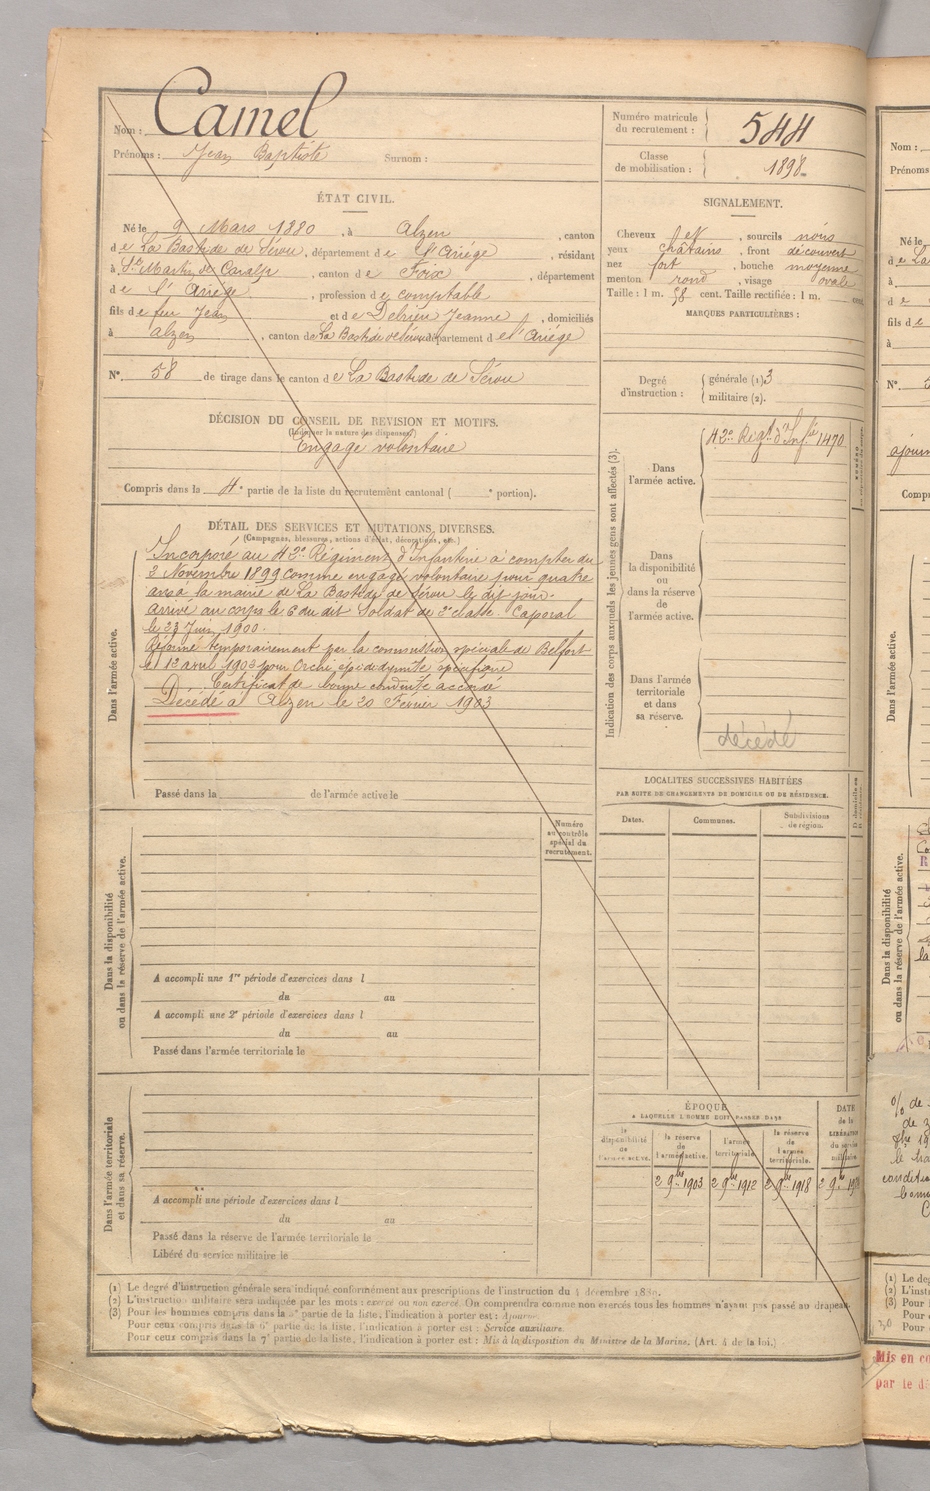 Nom : Camel
Prénoms : Jean Baptiste Surnom :
Numéro matricule du recrutement : 544
Classe de mobilisation : 1898
ÉTAT CIVIL.
Né le 9 Mars 1880, à Alzen, canton
de La Bastide de Sérou, département de l'Ariège, résidant
à St Martin de Caralp, canton de Foix, département
de l'Ariège, profession de comptable
fils de feu Jean et de Delrieu Jeanne, domiciliés
à Alzen, canton de La Bastide de Sérou département de l'Ariège
N° 58 de tirage dans le canton de La Bastide de Sérou
SIGNALEMENT.
Cheveux et, sourcils noirs
yeux châtains, front découvert
nez fort, bouche moyenne
menton rond, visage ovale
Taille : 1 m. 58 cent. Taille rectifiée : 1 m. cent.
MARQUES PARTICULIÈRES :
Degré d'instruction : générale (1) 3
militaire (2).
DÉCISION DU CONSEIL DE REVISION ET MOTIFS.
(Indiquer la nature des dispenses)
Engagé volontaire
Compris dans la 4e partie de la liste du recrutement cantonal ( e portion).
DÉTAIL DES SERVICES ET MUTATIONS DIVERSES.
(Campagnes, blessures, actions d'éclat, décorations, etc.)
Dans l'armée active.
Incorporé au 42e Régiment d'Infanterie à compter du
2 Novembre 1899 comme engagé volontaire pour quatre
ans à la mairie de La Bastide de Sérou le dit jour.
Arrivé au corps le 6 du dit Soldat de 2e classe. Caporal
le 23 Juin 1900.
Réformé temporairement par la commission spéciale de Belfort
le 1er avril 1903 pour Orchi épididymite spécifique
Certificat de bonne conduite accordé
Décédé à Alzen le 20 Février 1903
Passé dans la de l'armée active le
Indication des corps auxquels les jeunes gens sont affectés (3).
Dans l'armée active.
42e Régt d'Infie 1470
NUMÉRO
Dans la disponibilité ou dans la réserve de l'armée active.
Dans l'armée territoriale et dans sa réserve.
décédé
LOCALITES SUCCESSIVES HABITÉES
PAR SUITE DE CHANGEMENTS DE DOMICILE OU DE RÉSIDENCE.
Dates. Communes. Subdivisions de région.
Numéro au contrôle spécial du recrutement.
Dans la disponibilité ou dans la réserve de l'armée active.
A accompli une 1re période d'exercices dans l
du au
A accompli une 2e période d'exercices dans l
du au
Passé dans l'armée territoriale le
Dans l'armée territoriale et dans sa réserve.
A accompli une période d'exercices dans l
du au
Passé dans la réserve de l'armée territoriale le
Libéré du service militaire le
ÉPOQUE
A LAQUELLE L'HOMME DOIT PASSER DANS
la disponibilité de l'armée active.
la réserve de l'armée active.
l'armée territoriale.
la réserve de l'armée territoriale.
DATE de la LIBÉRATION du service militaire.
2 9bre 1903 2 9bre 1912 2 9bre 1918 2 9bre
(1) Le degré d'instruction générale sera indiqué conformément aux prescriptions de l'instruction du 4 décembre 1889.
(2) L'instruction militaire sera indiquée par les mots : exercé ou non exercé. On comprendra comme non exercés tous les hommes n'ayant pas passé au drapeau.
(3) Pour les hommes compris dans la 2e partie de la liste, l'indication à porter est : Ajourné.
Pour ceux compris dans la 6e partie de la liste, l'indication à porter est : Service auxiliaire.
Pour ceux compris dans la 7e partie de la liste, l'indication à porter est : Mis à la disposition du Ministre de la Marine. (Art. 4 de la loi.)
Nom :
Prénoms
Né le
fils de
N°
Compris
Dans l'armée active.
Dans la disponibilité ou dans la réserve de l'armée active.
Mis en
par le